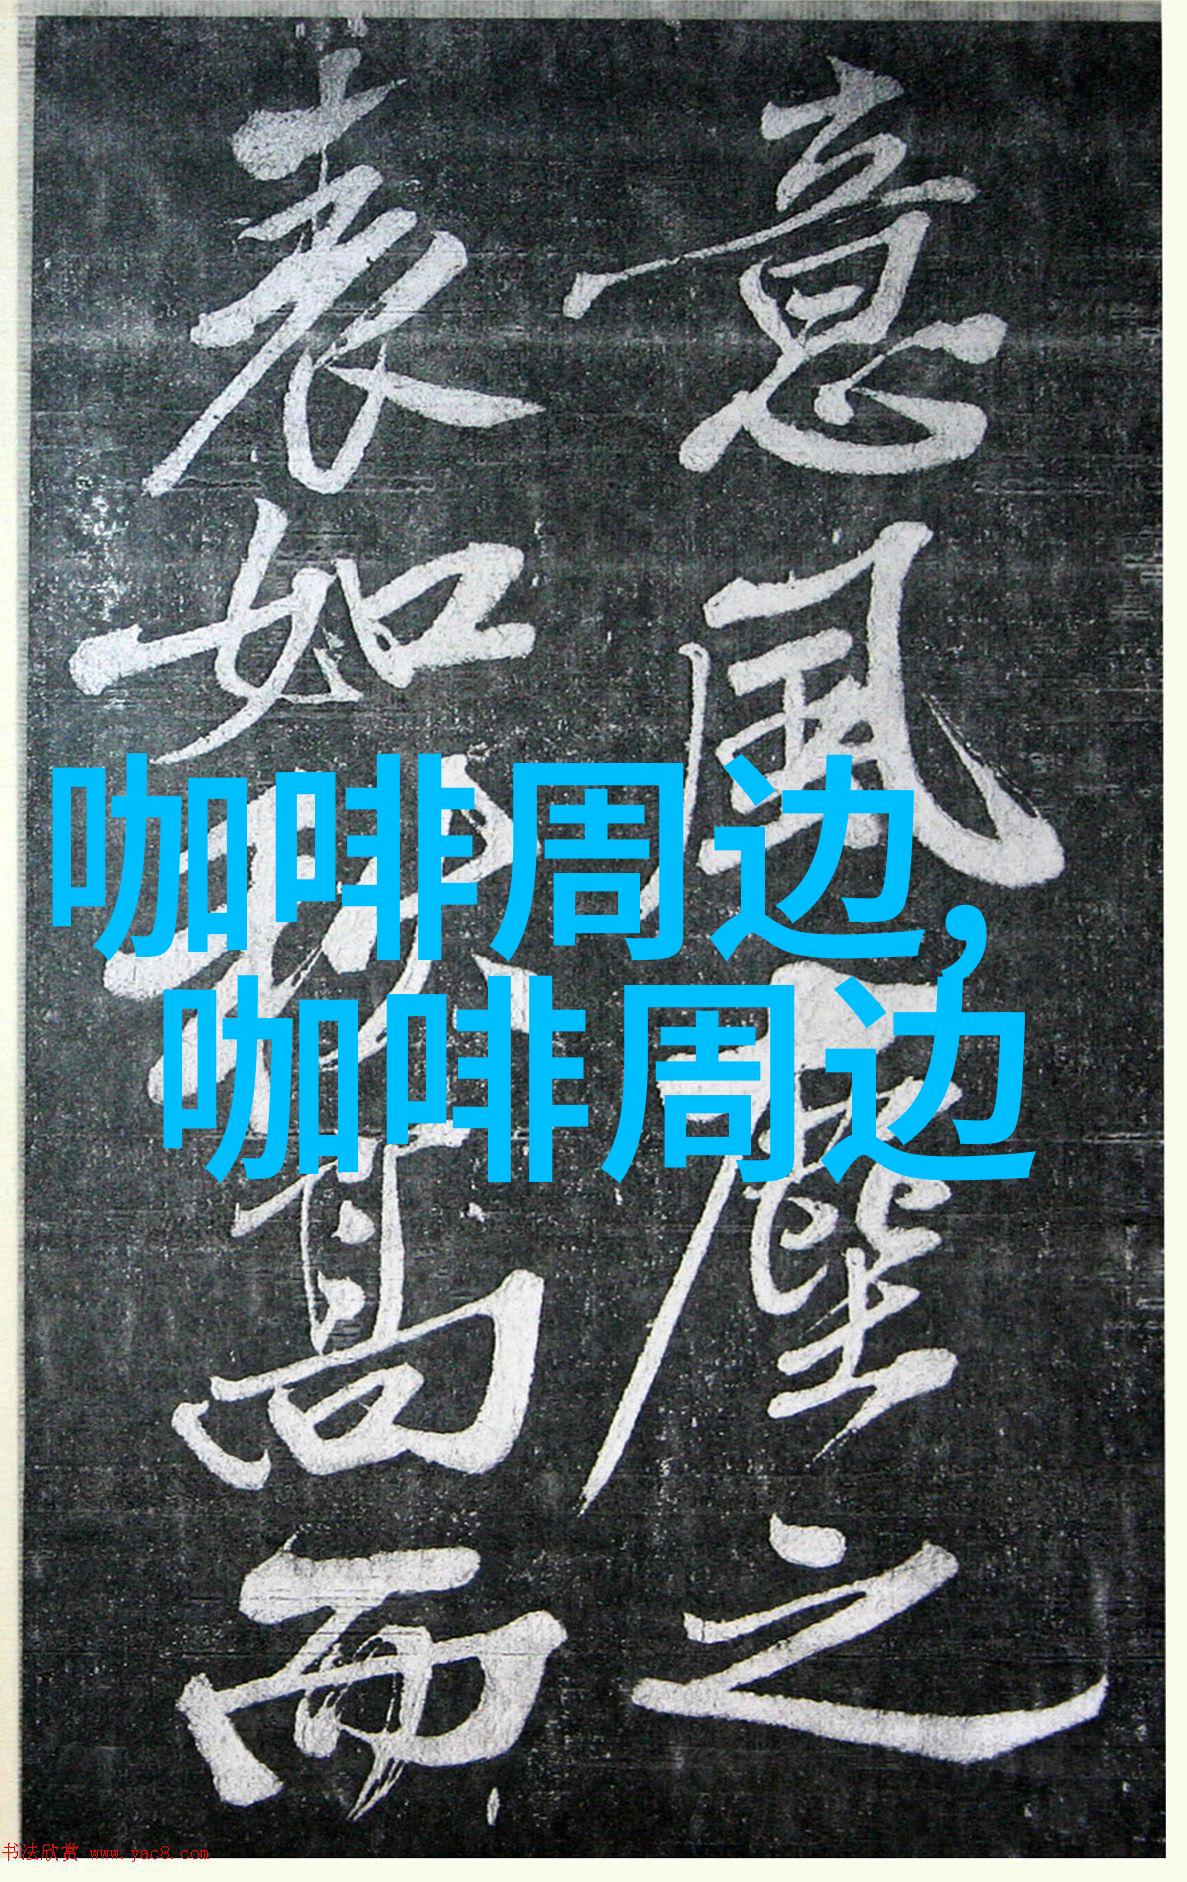 意風塵之
表如高而
咖啡周边,
咖啡周边
书法欣赏 www.yac8.com